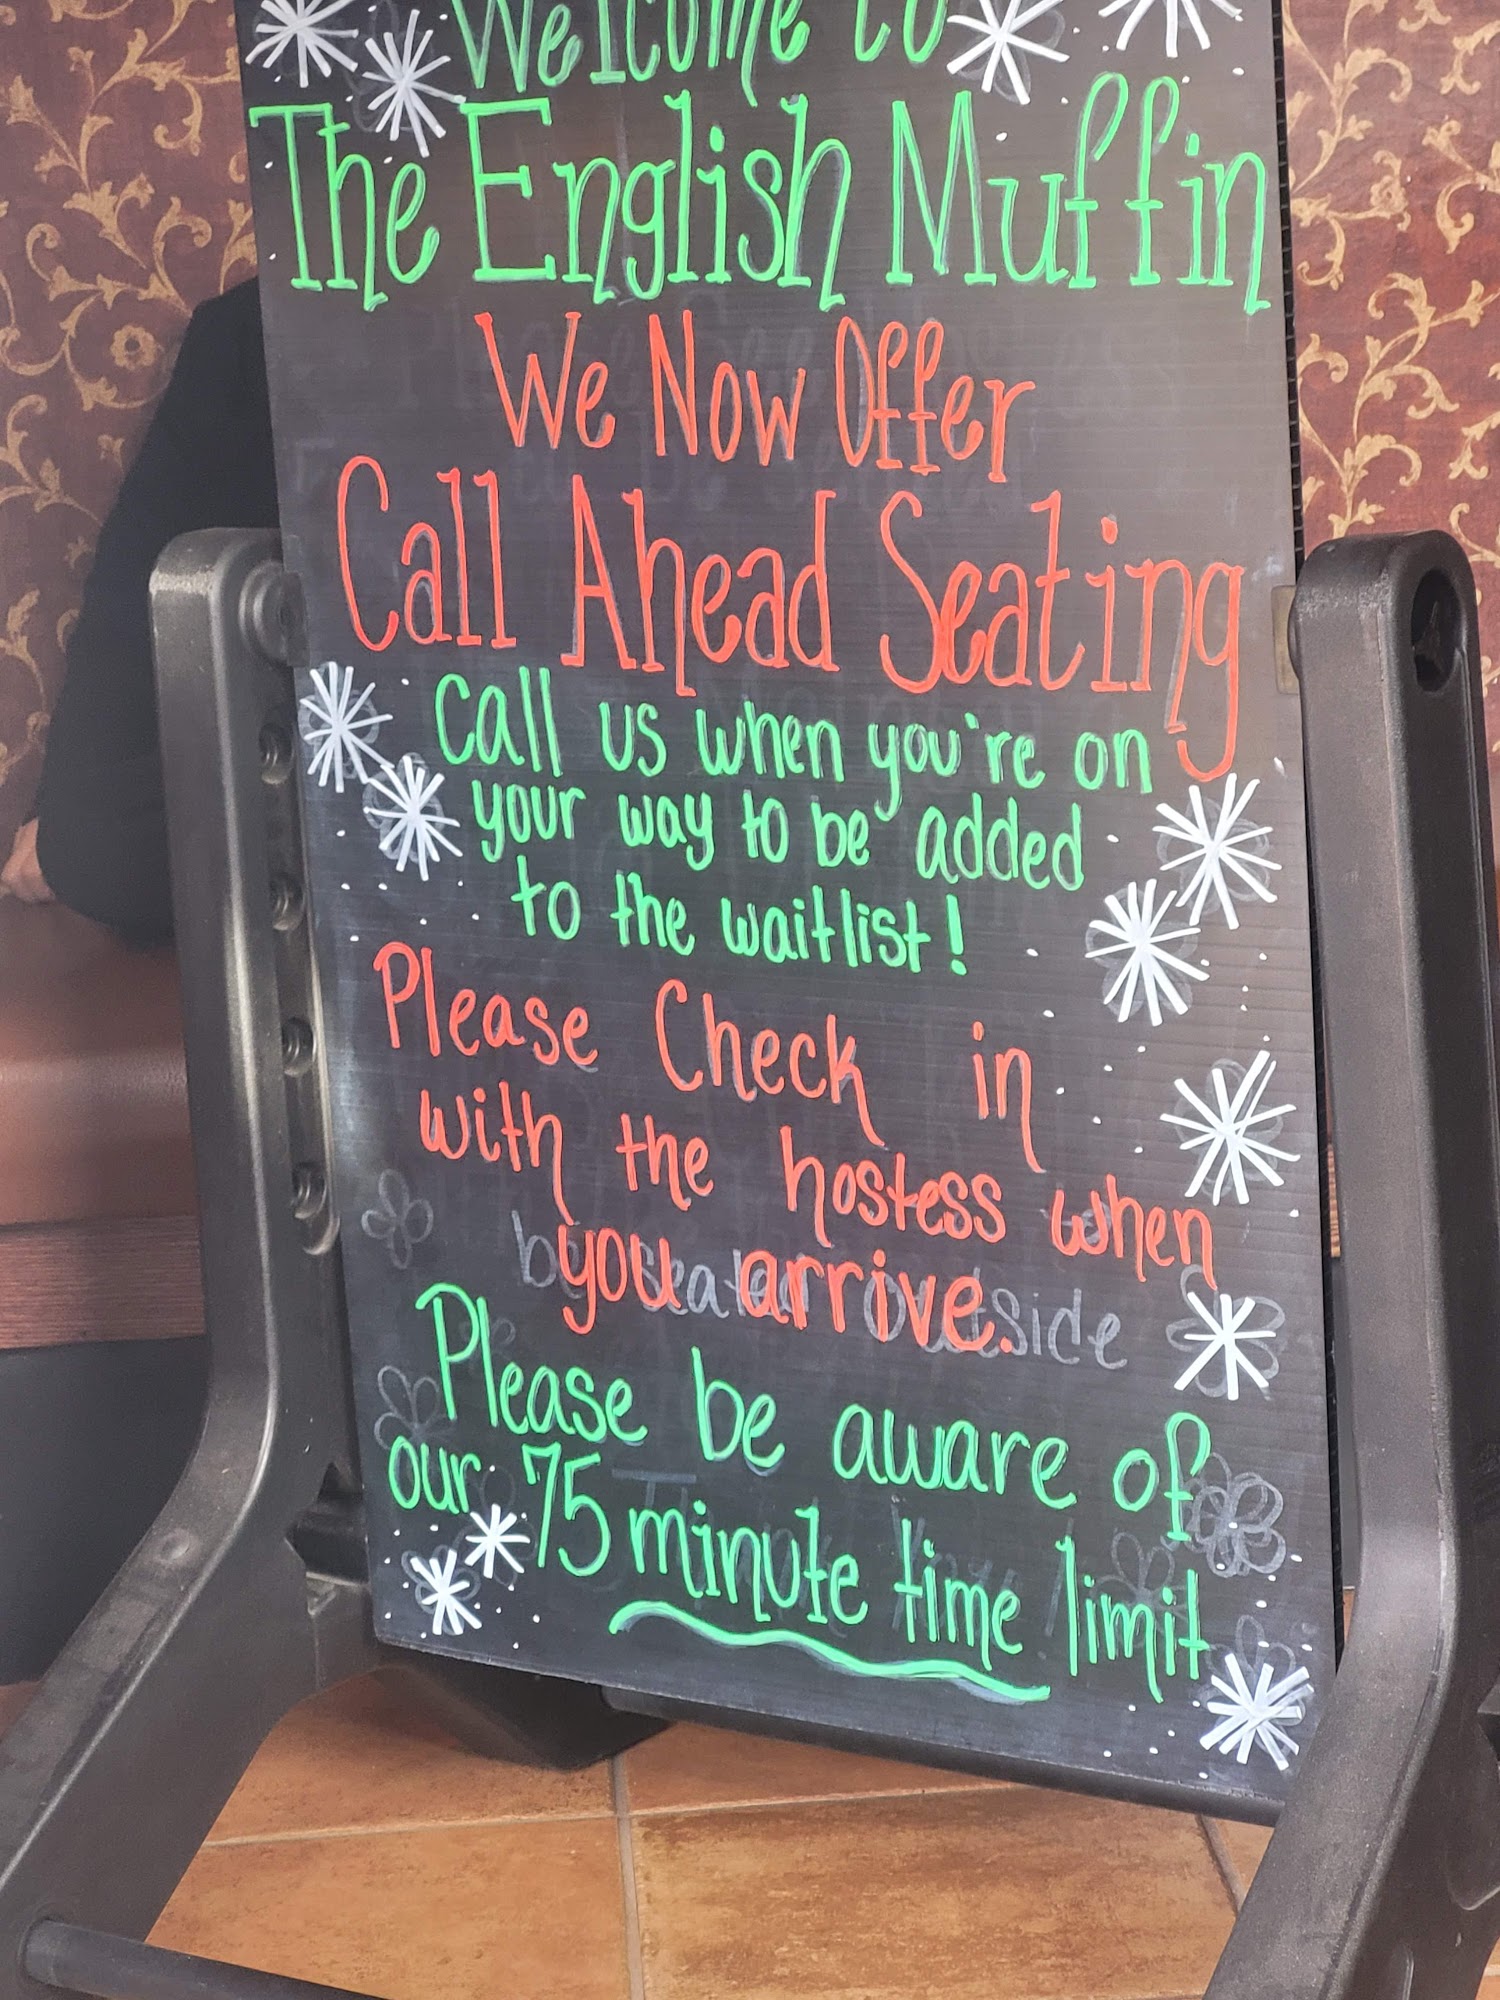 Welcome to
The English Muffin
We Now Offer
Call Ahead Seating
Call us when you're on
your way to be added
to the waitlist!
Please Check in
with the hostess when
you arrive.
be seated outside
Please be aware of
our 75 minute time limit